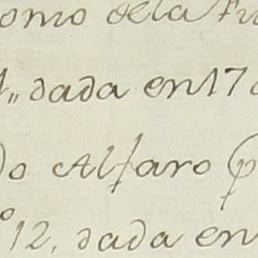 omo de la Fu
1,, dada en 17
do Alfaro (p
º 12, dada en